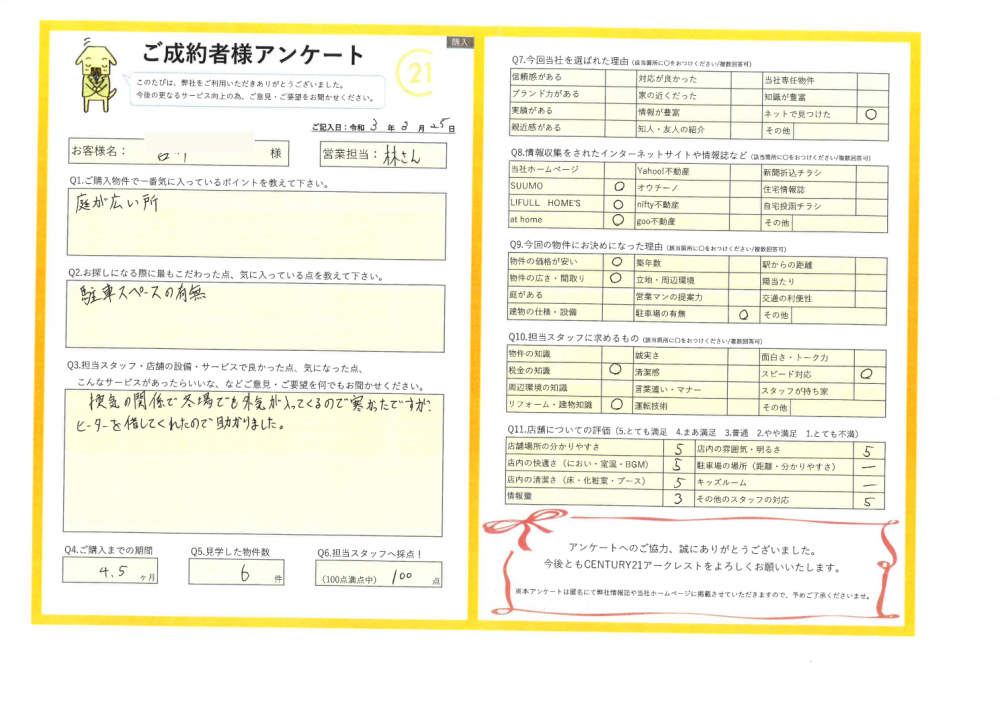 購入
ご成約者様アンケート
21
このたびは、弊社をご利用いただきありがとうございました。
今後の更なるサービス向上の為、ご意見・ご要望をお聞かせください。
ご記入日：令和 3 年 3 月 25 日
お客様名： 様
営業担当：林さん
Q1.ご購入物件で一番気に入っているポイントを教えて下さい。
庭が広い所
Q2.お探しになる際に最もこだわった点、気に入っている点を教えて下さい。
駐車スペースの有無
Q3.担当スタッフ・店舗の設備・サービスで良かった点、気になった点、
こんなサービスがあったらいいな、などご意見・ご要望を何でもお聞かせください。
換気の関係で冬場でも外気が入ってくるので寒かったですが、
ヒーターを借してくれたので助かりました。
Q4.ご購入までの期間
4,5 ヶ月
Q5.見学した物件数
6 件
Q6.担当スタッフへ採点！
（100点満点中） 100 点
Q7.今回当社を選ばれた理由（該当箇所に〇をおつけください/複数回答可）
信頼感がある 対応が良かった 当社専任物件
ブランド力がある 家の近くだった 知識が豊富
実績がある 情報が豊富 ネットで見つけた 〇
親近感がある 知人・友人の紹介 その他
Q8.情報収集をされたインターネットサイトや情報誌など（該当箇所に〇をおつけください/複数回答可）
当社ホームページ Yahoo!不動産 新聞折込チラシ
SUUMO 〇 オウチーノ 住宅情報誌
LIFULL HOME'S 〇 nifty不動産 自宅投函チラシ
at home 〇 goo不動産 その他
Q9.今回の物件にお決めになった理由（該当箇所に〇をおつけください/複数回答可）
物件の価格が安い 〇 築年数 駅からの距離
物件の広さ・間取り 〇 立地・周辺環境 陽当たり
庭がある 営業マンの提案力 交通の利便性
建物の仕様・設備 駐車場の有無 〇 その他
Q10.担当スタッフに求めるもの（該当箇所に〇をおつけください/複数回答可）
物件の知識 誠実さ 面白さ・トーク力
税金の知識 〇 清潔感 スピード対応 〇
周辺環境の知識 言葉遣い・マナー スタッフが持ち家
リフォーム・建物知識 〇 運転技術 その他
Q11.店舗についての評価（5.とても満足 4.まあ満足 3.普通 2.やや満足 1.とても不満）
店舗場所の分かりやすさ 5 店内の雰囲気・明るさ 5
店内の快適さ（におい・室温・BGM） 5 駐車場の場所（距離・分かりやすさ） ー
店内の清潔さ（床・化粧室・ブース） 5 キッズルーム ー
情報量 3 その他のスタッフの対応 5
アンケートへのご協力、誠にありがとうございました。
今後ともCENTURY21アークレストをよろしくお願いいたします。
※本アンケートは匿名にて弊社情報誌や当社ホームページに掲載させていただきますので、予めご了承くださいませ。